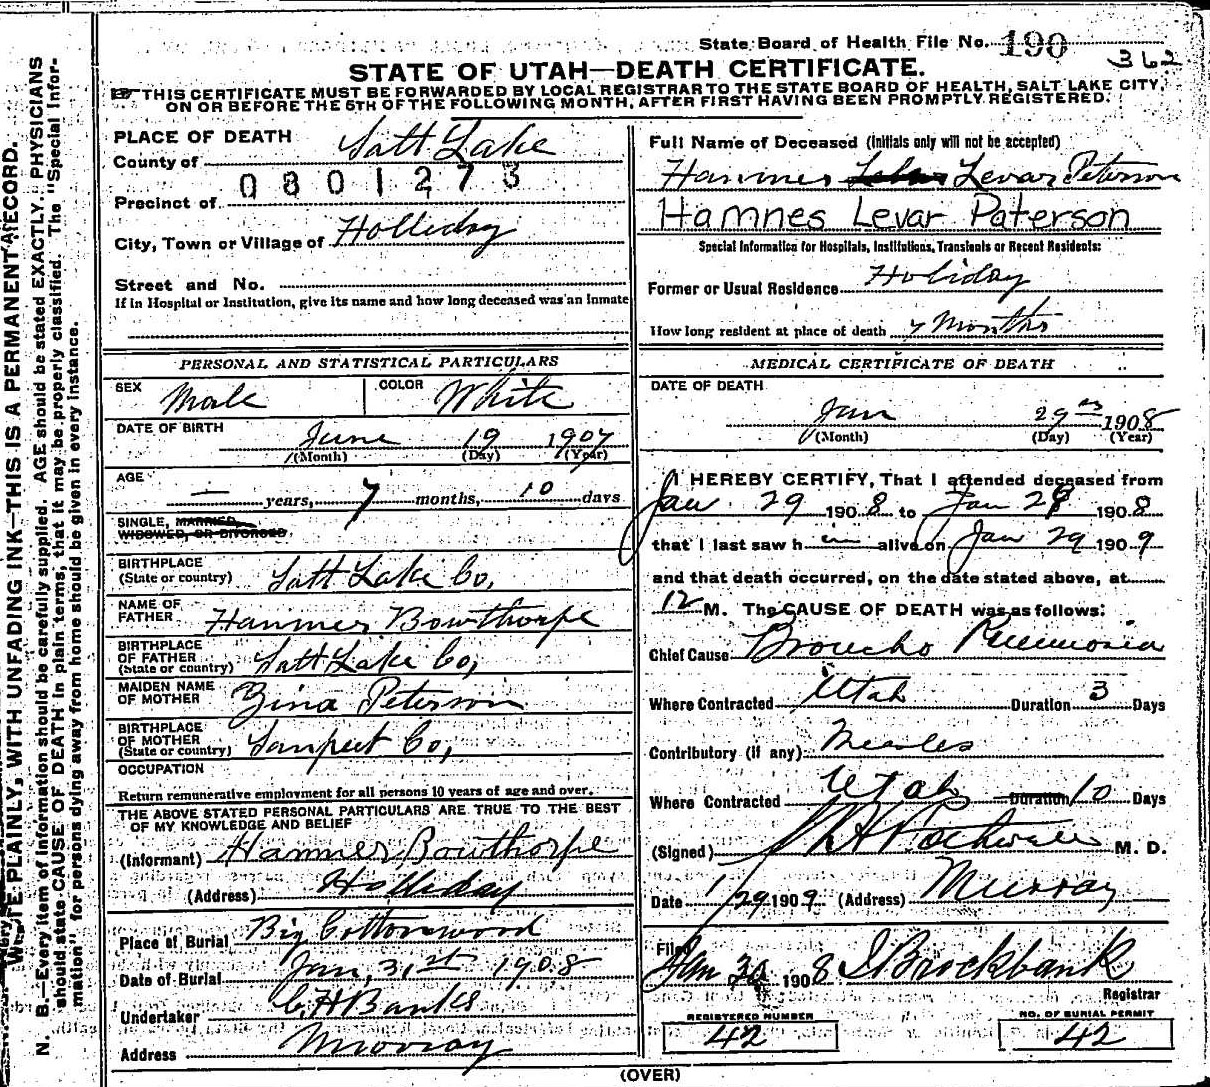 State Board of Health File No. 190
362
STATE OF UTAH—DEATH CERTIFICATE.
THIS CERTIFICATE MUST BE FORWARDED BY LOCAL REGISTRAR TO THE STATE BOARD OF HEALTH, SALT LAKE CITY,
ON OR BEFORE THE 5TH OF THE FOLLOWING MONTH, AFTER FIRST HAVING BEEN PROMPTLY REGISTERED.
WRITE PLAINLY, WITH UNFADING INK—THIS IS A PERMANENT RECORD.
N. B.—Every item of information should be carefully supplied. AGE should be stated EXACTLY. PHYSICIANS
should state CAUSE OF DEATH in plain terms, that it may be properly classified. The "Special Infor-
mation" for persons dying away from home should be given in every instance.
PLACE OF DEATH
County of Salt Lake
0801273
Precinct of
City, Town or Village of Holliday
Street and No.
If in Hospital or Institution, give its name and how long deceased was an Inmate
PERSONAL AND STATISTICAL PARTICULARS
SEX Male COLOR White
DATE OF BIRTH June 19 1907
(Month) (Day) (Year)
AGE — years, 7 months, 10 days
SINGLE, MARRIED,
WIDOWED, OR DIVORCED
BIRTHPLACE
(State or country) Salt Lake Co,
NAME OF
FATHER Hammer Bowthorpe
BIRTHPLACE
OF FATHER
(State or country) Salt Lake Co,
MAIDEN NAME
OF MOTHER Zina Peterson
BIRTHPLACE
OF MOTHER
(State or country) Sanpeet Co,
OCCUPATION
Return remunerative employment for all persons 10 years of age and over.
THE ABOVE STATED PERSONAL PARTICULARS ARE TRUE TO THE BEST
OF MY KNOWLEDGE AND BELIEF
(Informant) Hammer Bowthorpe
(Address) Holliday
Place of Burial Big Cottonwood
Date of Burial Jan, 31st 1908
Undertaker C. H Banks
Address Murray
Full Name of Deceased (Initials only will not be accepted)
Hammer Levar Peterson
Hamnes Levar Paterson
Special Information for Hospitals, Institutions, Transients or Recent Residents:
Former or Usual Residence Holiday
How long resident at place of death 7 Months
MEDICAL CERTIFICATE OF DEATH
DATE OF DEATH
Jan 29 1908
(Month) (Day) (Year)
I HEREBY CERTIFY, That I attended deceased from
Jan 29 1908 to Jan 29 1908
that I last saw him alive on Jan 29 1909
and that death occurred, on the date stated above, at
12 M. The CAUSE OF DEATH was as follows:
Chief Cause Broncho Pneumonia
Where Contracted Utah Duration 3 Days
Contributory (if any) Measles
Where Contracted Utah Duration 10 Days
(Signed) M. D.
Date 1/29 1909 (Address) Murray
Filed Jan 30 1908 Brockbank
Registrar
REGISTERED NUMBER
42
NO. OF BURIAL PERMIT
42
(OVER)